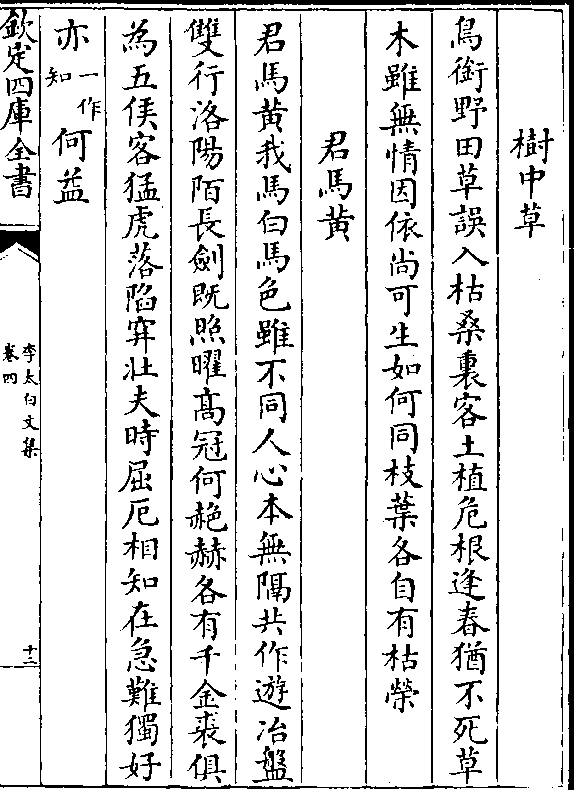 樹中草
鳥銜野田草誤入枯桑裏客土植危根逢春猶不死草
木雖無情因依尚可生如何同枝葉各自有枯榮
君馬黄
君馬黄我馬白馬色雖不同人心本無隔共作遊冶盤
雙行洛陽陌長劍既照曜髙冠何赩赫各有千金裘俱
為五侯客猛虎落陷穽壯夫時屈厄相知在急難獨好
亦一作知何益
欽定四庫全書
李太白文集
卷四
十三